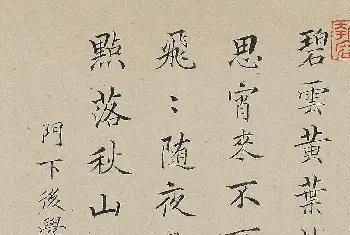 碧雲黃葉
思宵來不
飛〻隨夜
點落秋山
門下後學